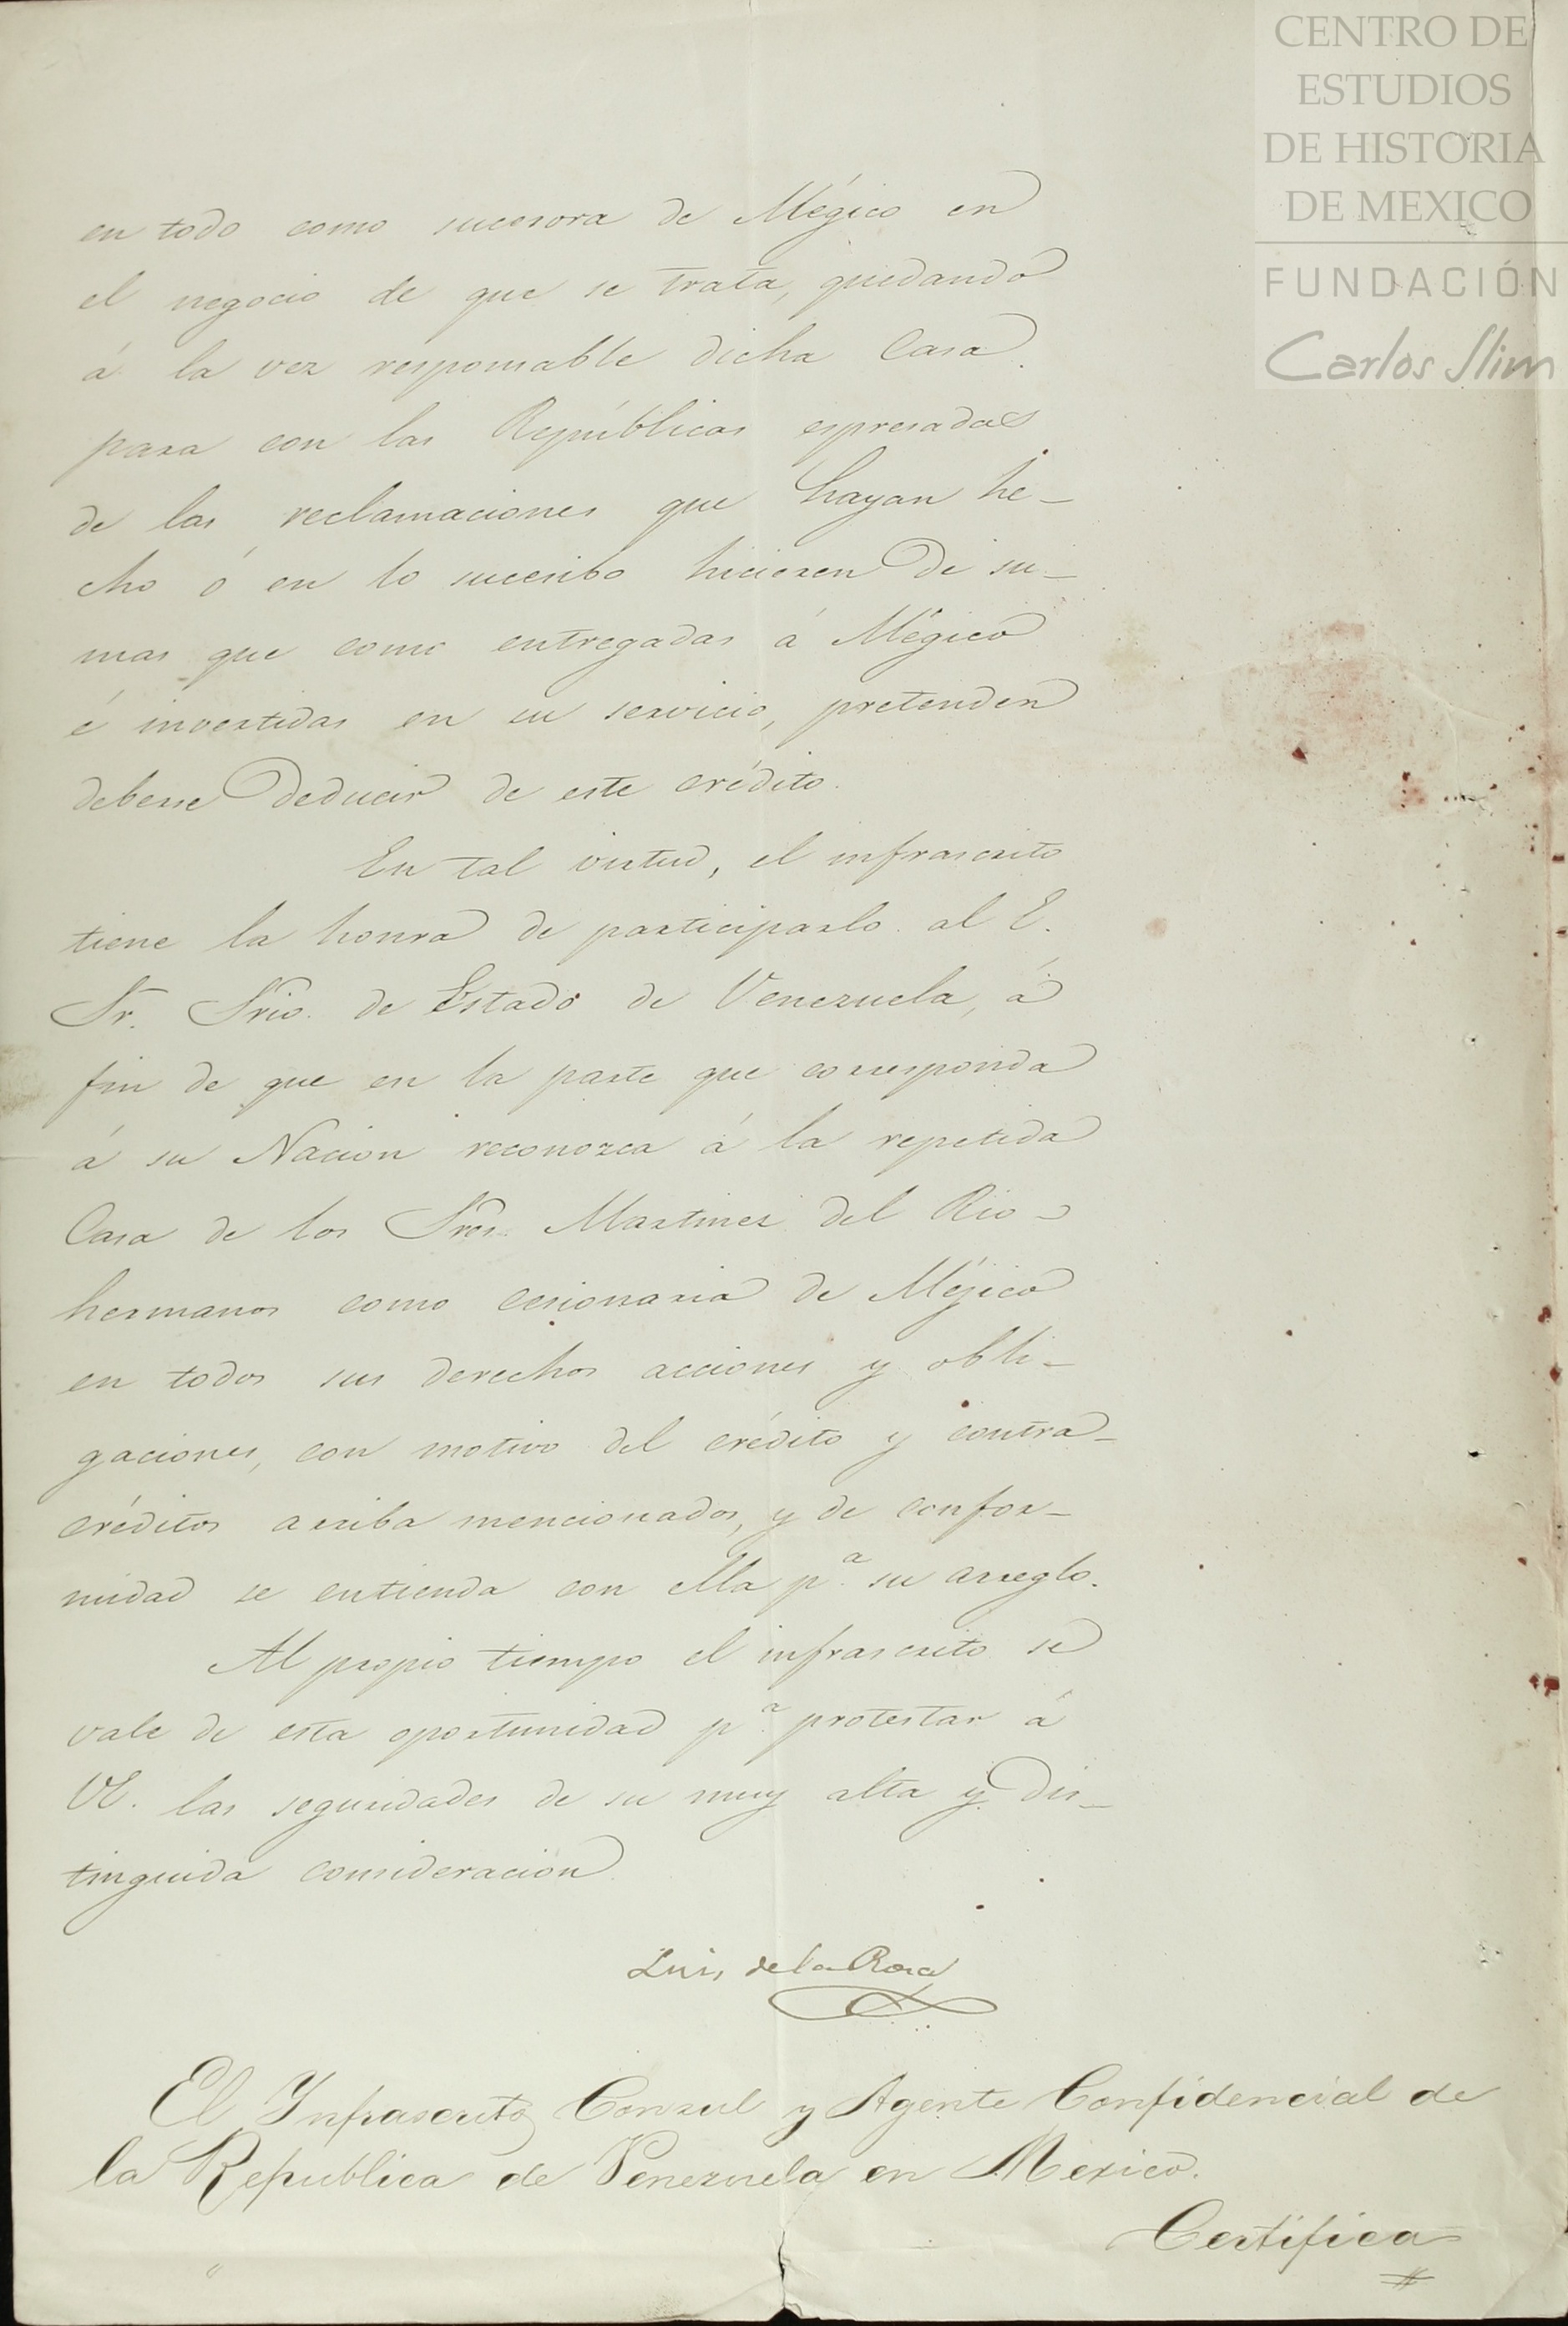 CENTRO DE
ESTUDIOS
DE HISTORIA
DE MEXICO
FUNDACIÓN
Carlos Slim
en todo como sucesora de Mégico en
el negocio de que se trata, quedando
á la vez responsable dicha Casa
para con las Repúblicas espresadas
de las reclamaciones que hayan he-
cho ó en lo succesibo hicieren de su-
mas que como entregadas á Mégico
é invertidas en su servicio, pretenden
deberse deducir de este crédito.
En tal virtud, el infrascrito
tiene la honra de participarlo al E.
Sr. Srio. de Estado de Venezuela, á
fin de que en la parte que corresponda
á su Nacion reconozca á la repetida
Casa de los Sres. Martinez del Rio
hermanos como cesionaria de Méjico
en todos sus derechos acciones y obli-
gaciones, con motivo del crédito y contra-
créditos arriba mencionados, y de confor-
midad se entienda con ella pª. su arreglo.
Al propio tiempo el infrascrito se
vale de esta oportunidad pª. protestar á
VE. las seguridades de su muy alta y dis-
tinguida consideracion
Luis de la Rosa
El Infrascrito Consul y Agente Confidencial de
la Republica de Venezuela en Mexico.
Certifica